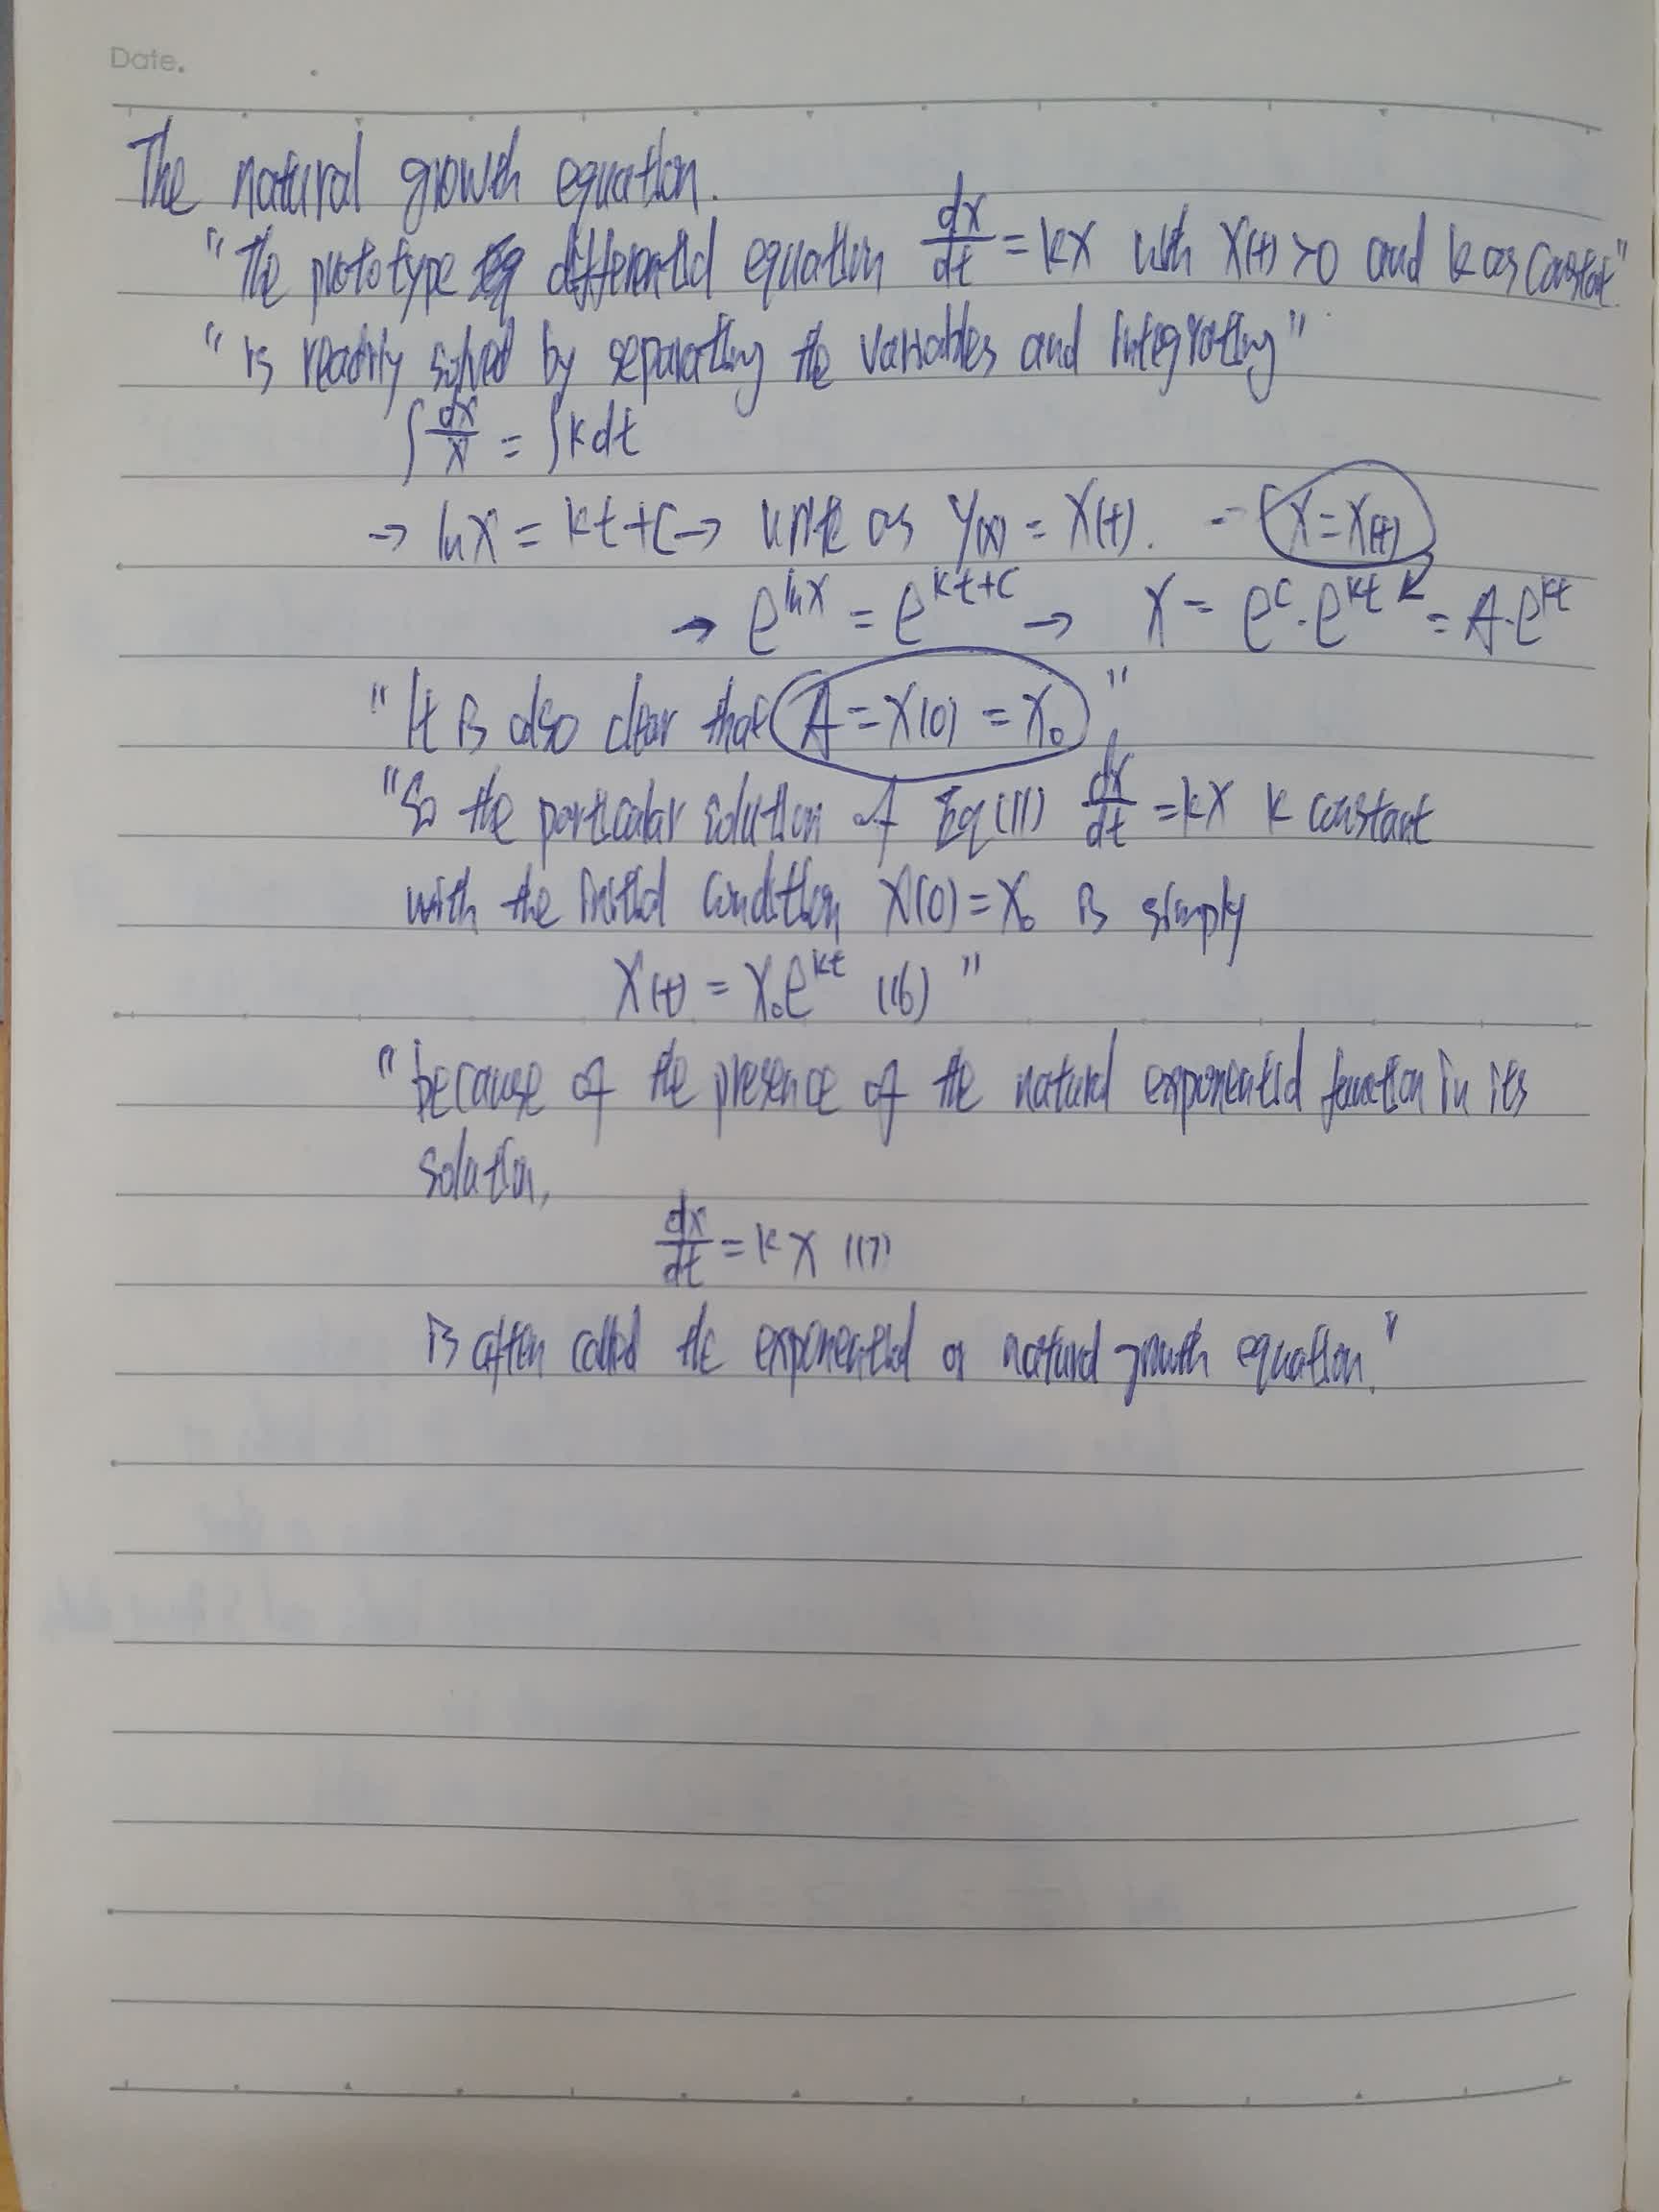 Date.
The natural growth equation.
"The prototype differential equation dx/dt = kx with x(t) > 0 and k as constant."
"is readily solved by separating the variables and integrating"
∫ dx/x = ∫ k dt
→ ln x = kt + C → write as y(x) = x(t). x = x(t)
→ e^{ln x} = e^{kt+C} → x = e^C · e^{kt} = A · e^{kt}
"It is also clear that A = x(0) = x₀"
"So the particular solution of Eq (11) dx/dt = kx k constant
with the initial condition x(0) = x₀ is simply
x(t) = x₀e^{kt} (16)"
"because of the presence of the natural exponential function in its
solution,
dx/dt = kx (17)
is often called the exponential or natural growth equation."